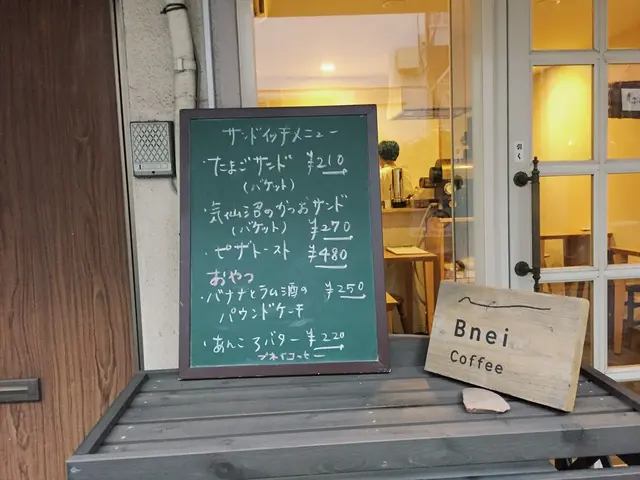 サンドイッチメニュー
・たまごサンド ¥210
(バケット)
・気仙沼のかつおサンド
(バケット) ¥270
・ピザトースト ¥480
おやつ
・バナナとラム酒の ¥250
パウンドケーキ
・あんころバター ¥220
ブネイコーヒー
Bnei
Coffee
引く